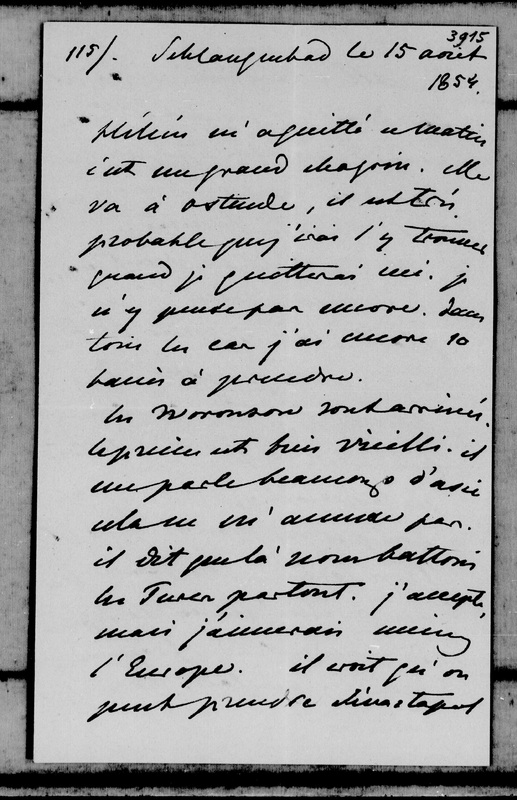 3915
115/. Schlangenbad le 15 août
1854.
Hélène m'a quitté ce matin
c'est un grand chagrin. Elle
va à Ostende, il est très
probable que j'irai l'y trouver
quand je quitterai ici. je
n'y pense pas encore. dans
tous les cas j'ai encore 10
bains à prendre.
les Woronzow sont arrivés.
le prince est bien vieilli. il
me parle beaucoup d'asie
cela ne m'amuse pas.
il dit que là nous battons
les Turcs partout. j'accepte,
mais j'aimerais mieux
l'Europe. il croit qu'on
peut prendre Sévastopol